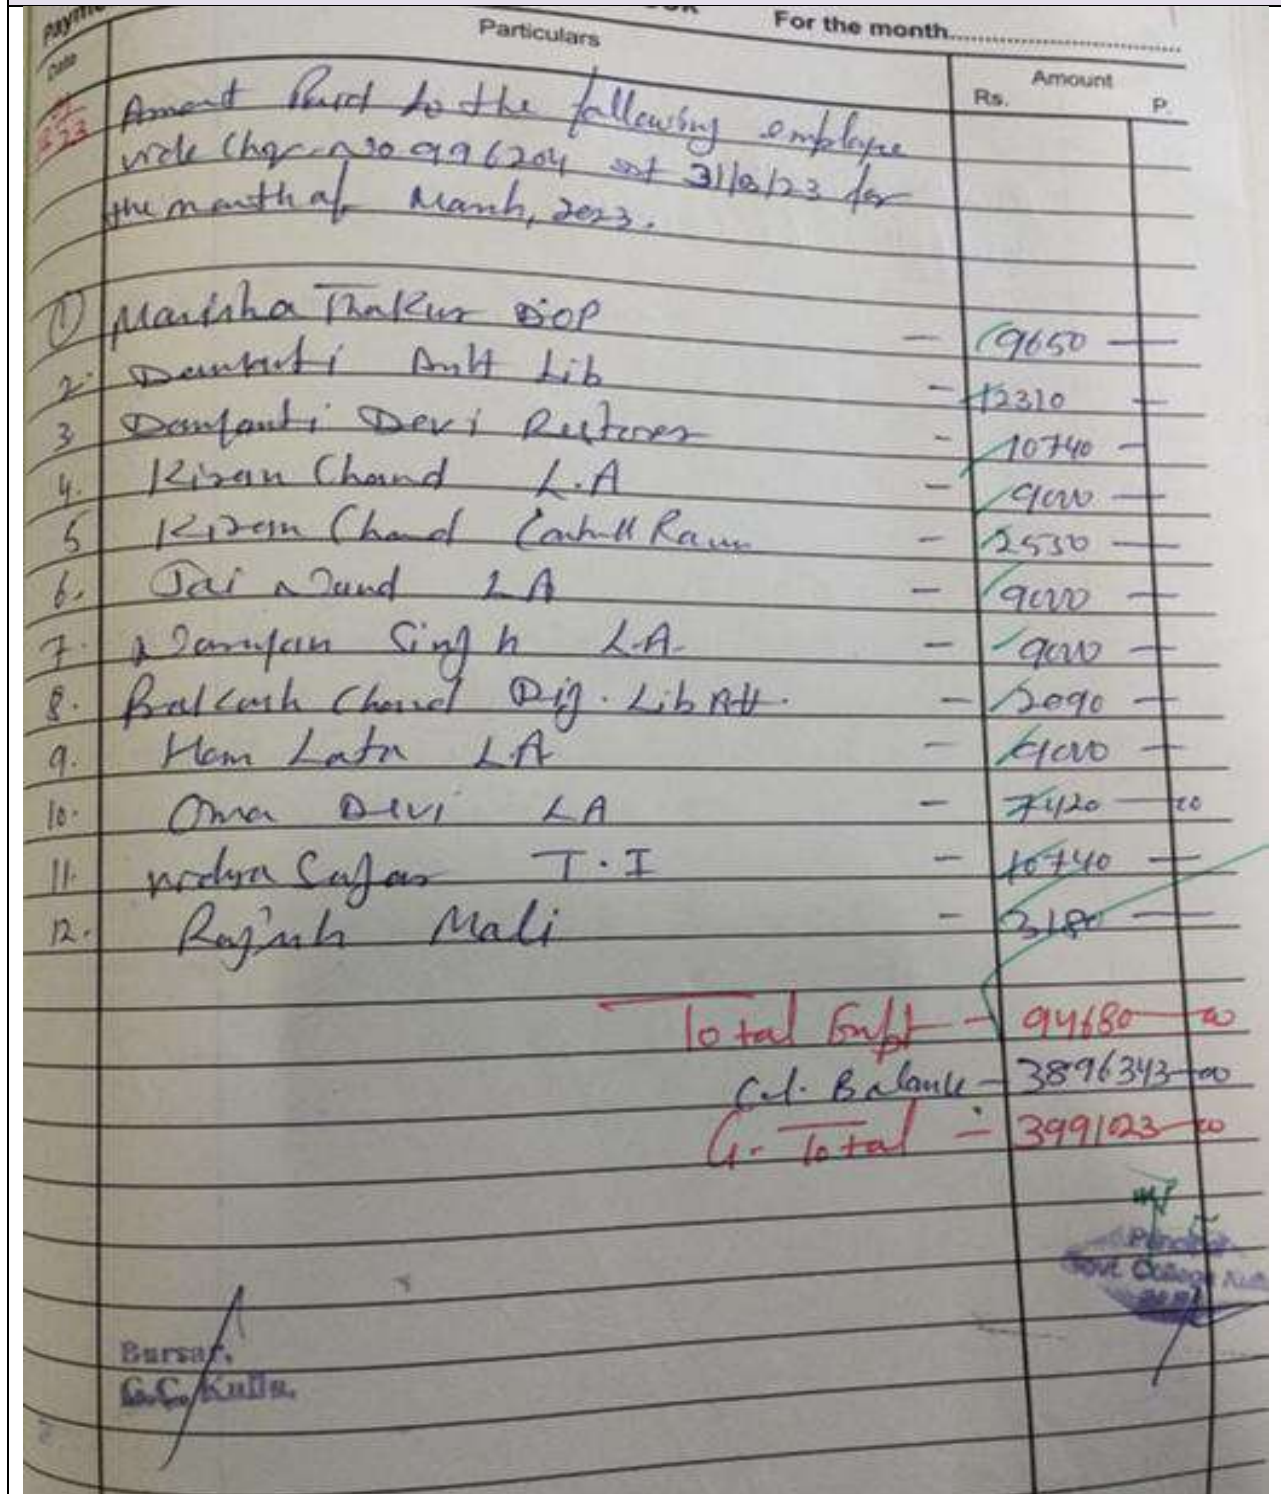 For the month
Particulars
Date
Amount
Rs. P.
Amount Paid to the following employee
vide Chq. No 996204 dt 31/3/23 for
the month of March, 2023.
1 Manisha Thakur DOP - 9650
2. Damyanti Antt Lib - 12310
3 Damyanti Devi Restorer - 10740
4. Kiran Chand L.A - 9000
5 Kiran Chand Room - 2530
6. Jai Nand LA - 9000
7. Narayan Singh L.A. - 9000
8. Chand Dig. Lib Att. - 2090
9. Hem Lata LA - 9000
10. Oma Devi LA - 7420 00
11. Vidya Sagar T.I - 10740
12. Rajnish Mali - 3180
Total - 94680 00
Cl. Balance - 3896343 00
G. Total - 3991023 00
Principal
Govt. College
Bursar,
G.C. Kullu.